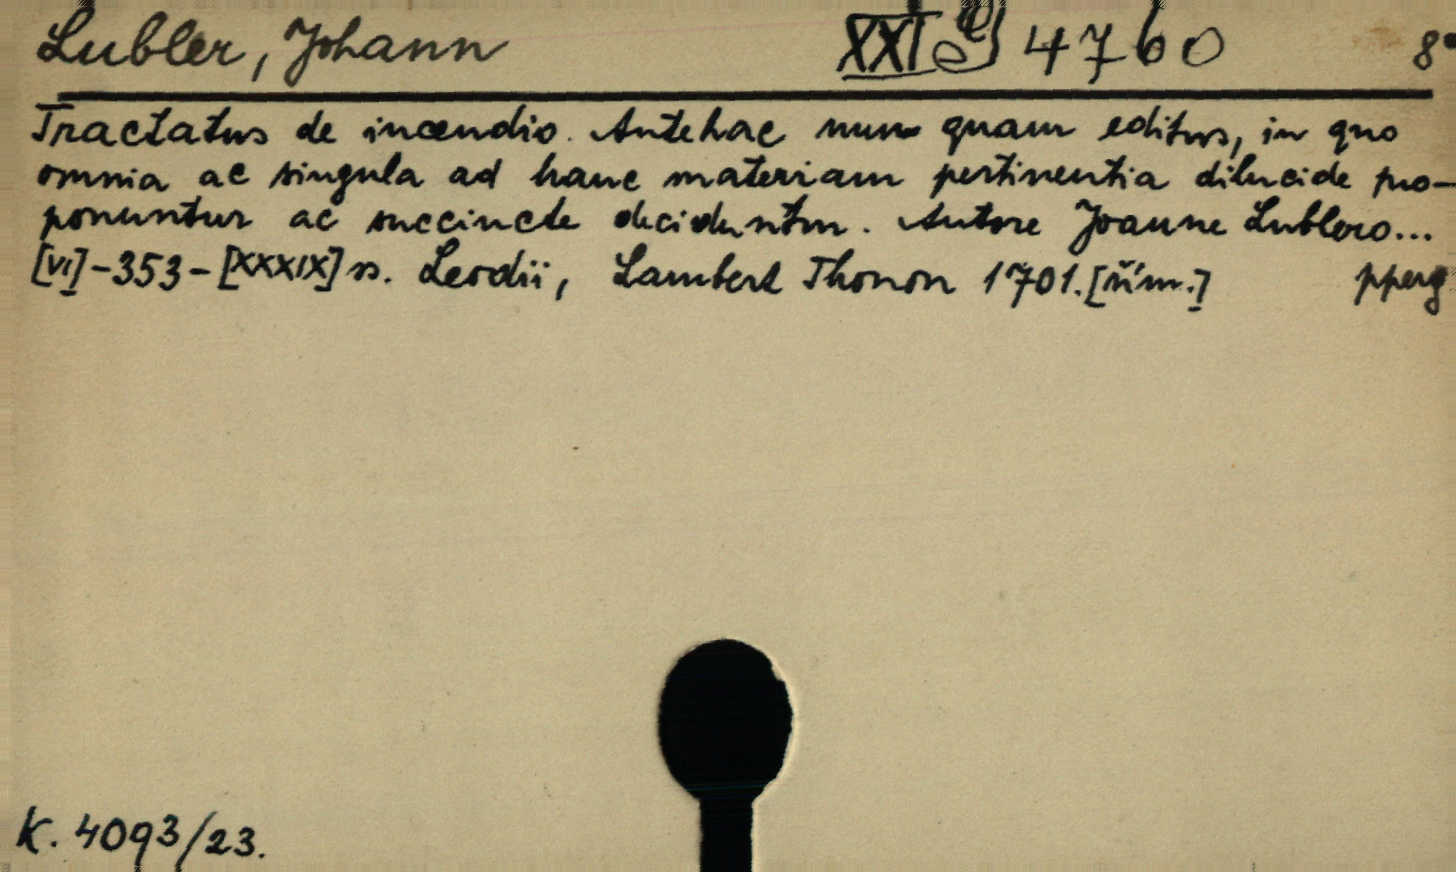 Lubler, Johann XXI G 4760 8°
Tractatus de incendio. Antehac nun quam editus, in quo
omnia ac singula ad hanc materiam pertinentia dilucide pro-
ponuntur ac succincte deciduntur. Autore Joanne Lublero...
[VI]-353-[XXXIX] ss. Leodii, Lambert Thonon 1701. [řím.] pperg
K. 4093/23.